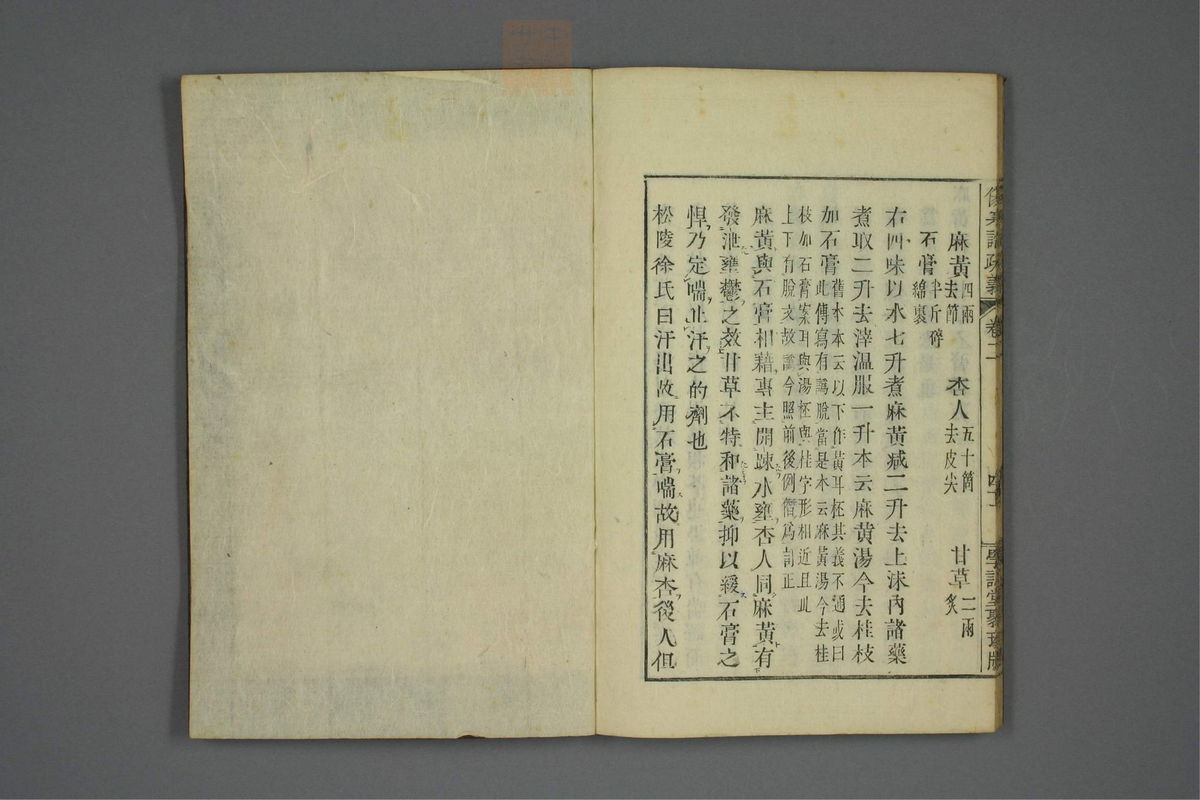 傷寒論疏義 卷二 學訓堂聚珍版
麻黃四兩去節 杏人五十箇去皮尖 甘草二兩炙
石膏半斤碎綿裹
右四味以水七升煮麻黃减二升去上沫內諸藥
煮取二升去滓温服一升本云麻黃湯今去桂枝
加石膏舊本本云以下作黃耳柸其義不通或曰此傳寫有譌脫當是本云麻黃湯今去桂
枝加石膏案耳與湯柸與桂字形相近且此上下有脫文故譌今照前後例僭爲訂正
麻黃與石膏相藉專主開疎水壅杏人同麻黃有
發泄壅鬱之效甘草不特和諸藥抑以緩石膏之
悍乃定喘止汗之的劑也
松陵徐氏曰汗出故用石膏喘故用麻杏後人但